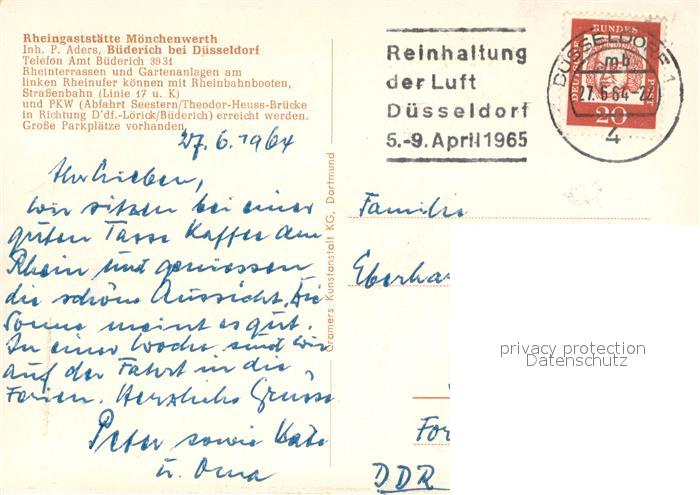 Rheingaststätte Mönchenwerth
Inh. P. Aders, Büderich bei Düsseldorf
Telefon Amt Büderich 39 31
Rheinterrassen und Gartenanlagen am
linken Rheinufer können mit Rheinbahnbooten,
Straßenbahn (Linie 17 u. K)
und PKW (Abfahrt Seestern/Theodor-Heuss-Brücke
in Richtung D'df.-Lörick/Büderich) erreicht werden.
Große Parkplätze vorhanden
27.6.1964
Ihr Lieben,
wir sitzen bei einer
guten Tasse Kaffee am
Rhein und geniessen
die schöne Aussicht. Die
Sonne meint es gut.
In einer Woche sind wir
auf der Fahrt in die
Ferien. Herzliche Grüsse
Peter sowie Käte
u. Oma
Cramers Kunstanstalt KG, Dortmund
Reinhaltung
der Luft
Düsseldorf
5.-9. April 1965
DÜSSELDORF 1
mb
27.6.64-2
4
DEUTSCHE
BUNDES
20
Familie
Eberha
For
DDR
privacy protection
Datenschutz